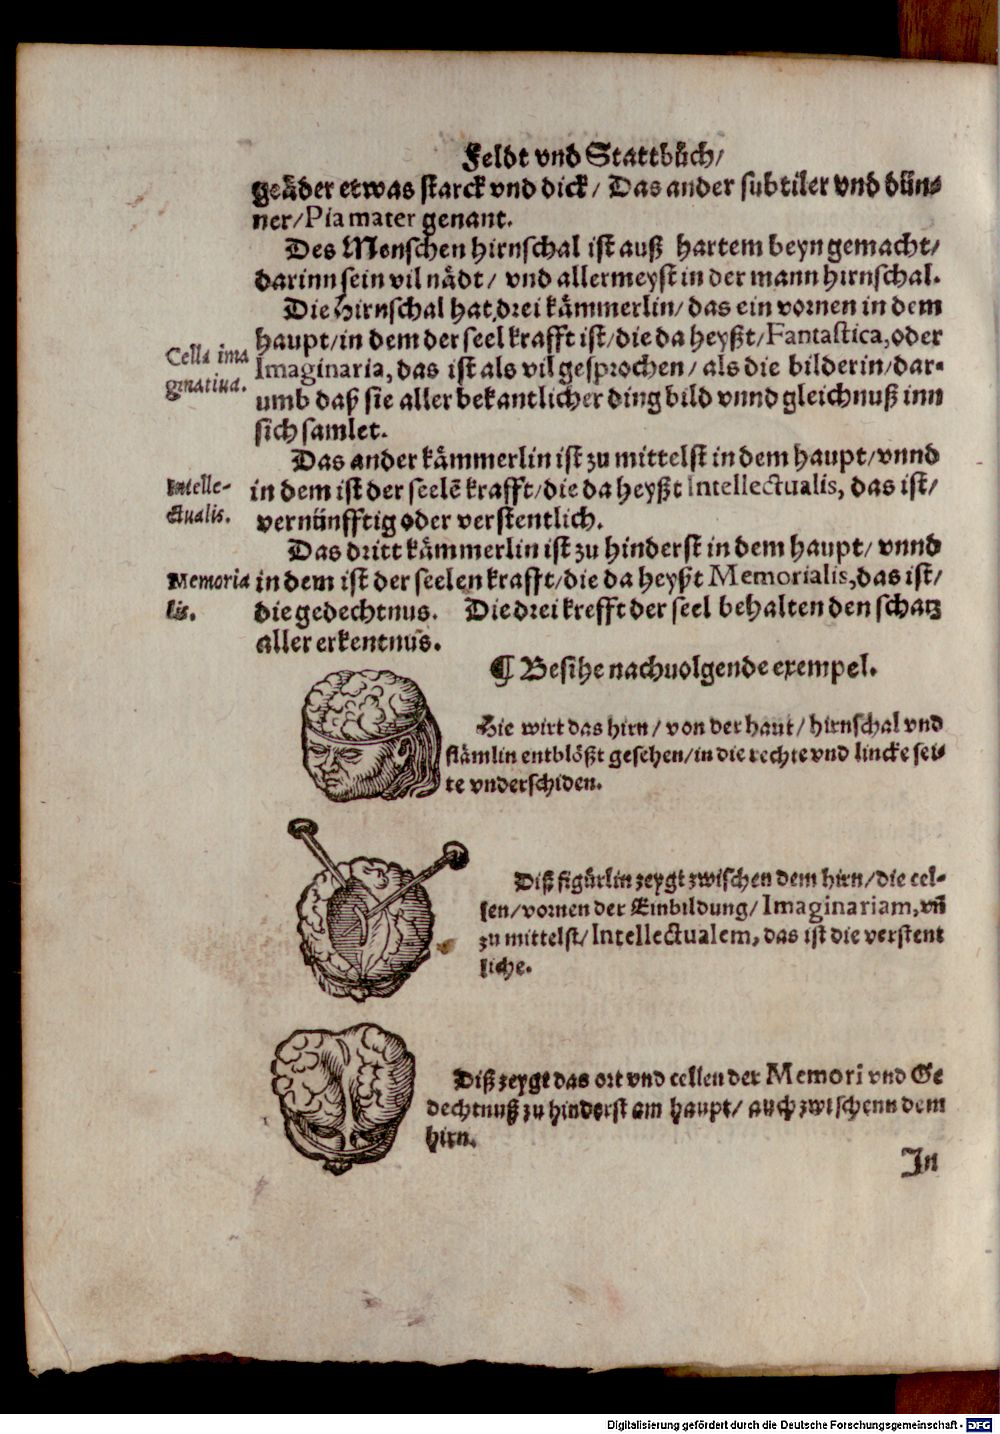 Feldt vnd Stattbůch/
geäder etwas starck vnd dick/ Das ander subtiler vnd dün⸗
ner/Pia mater genant.
Des Menschen hirnschal ist auß hartem beyn gemacht/
darinn sein vil nädt/ vnd allermeyst in der mann hirnschal.
Die hirnschal hat drei kämmerlin/ das ein vornen in dem
haupt/in dem der seel krafft ist/die da heyßt/Fantastica, oder
Imaginaria, das ist als vil gesprochen/ als die bilderin/dar⸗
umb daß sie aller bekantlicher ding bild vnnd gleichnuß inn
sich samlet.
Cella ima
ginatiua.
Das ander kämmerlin ist zu mittelst in dem haupt/vnnd
in dem ist der seelē krafft/die da heyßt Intellectualis, das ist/
vernünfftig oder verstentlich.
Intelle-
ctualis.
Das dritt kämmerlin ist zu hinderst in dem haupt/ vnnd
in dem ist der seelen krafft/die da heyßt Memorialis,das ist/
die gedechtnus. Die drei krefft der seel behalten den schatz
aller erkentnus.
Memoria
lis.
¶ Besihe nachuolgende exempel.
Hie wirt das hirn/ von der haut/ hirnschal vnd
flämlin entblößt gesehen/in die rechte vnd lincke sei⸗
te vnderschiden.
Diß figürlin zeygt zwischen dem hirn/die cel⸗
len/vornen der Einbildung/ Imaginariam,vñ
zu mittelst/Intellectualem, das ist die verstent
liche.
Diß zeygt das ort vnd cellen der Memori vnd Ge
dechtnuß zu hinderst am haupt/ auch zwischenn dem
hirn.
In
Digitalisierung gefördert durch die Deutsche Forschungsgemeinschaft - DFG